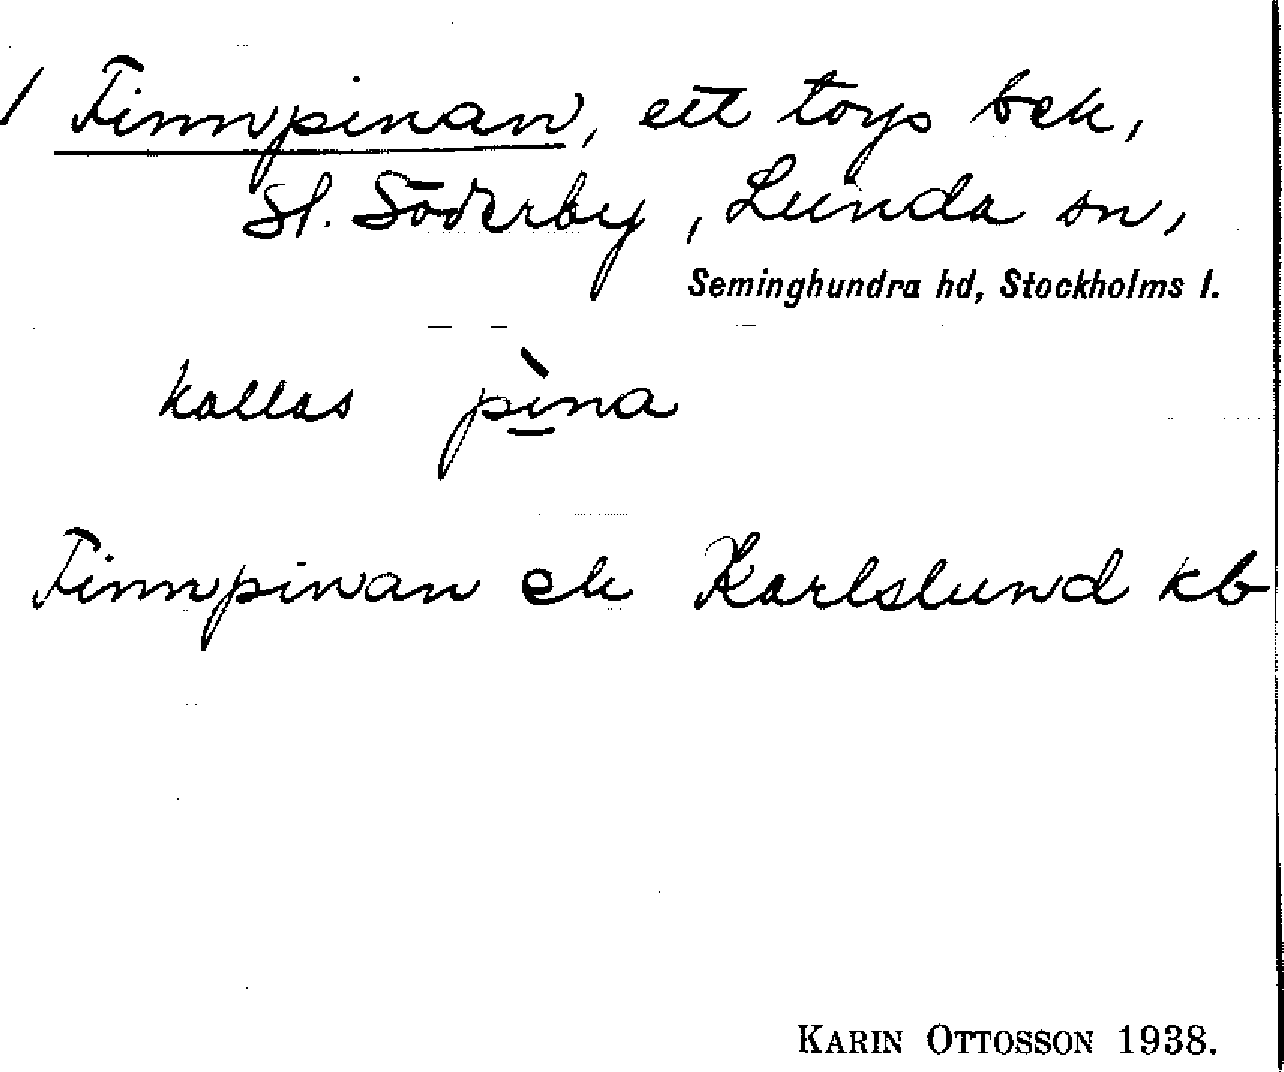 / Finnpinan, ett torps bek,
St. Söderby, Lunda sn,
Seminghundra hd, Stockholms l.
kallas pìna
Finnpinan el Karlslund kb
KARIN OTTOSSON 1938.